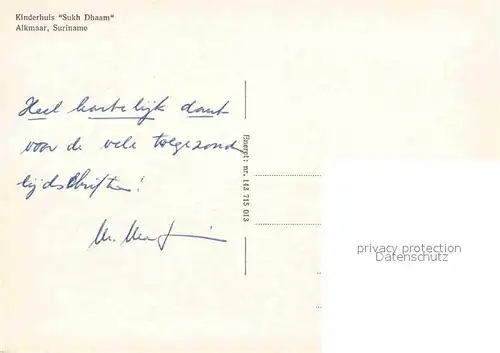 Kinderhuis "Sukh Dhaam"
Alkmaar, Suriname
Heel hartelijk dank
voor de vele toegezonden
tijdschriften!
Eneret: nr. 143 715 013
privacy protection
Datenschutz